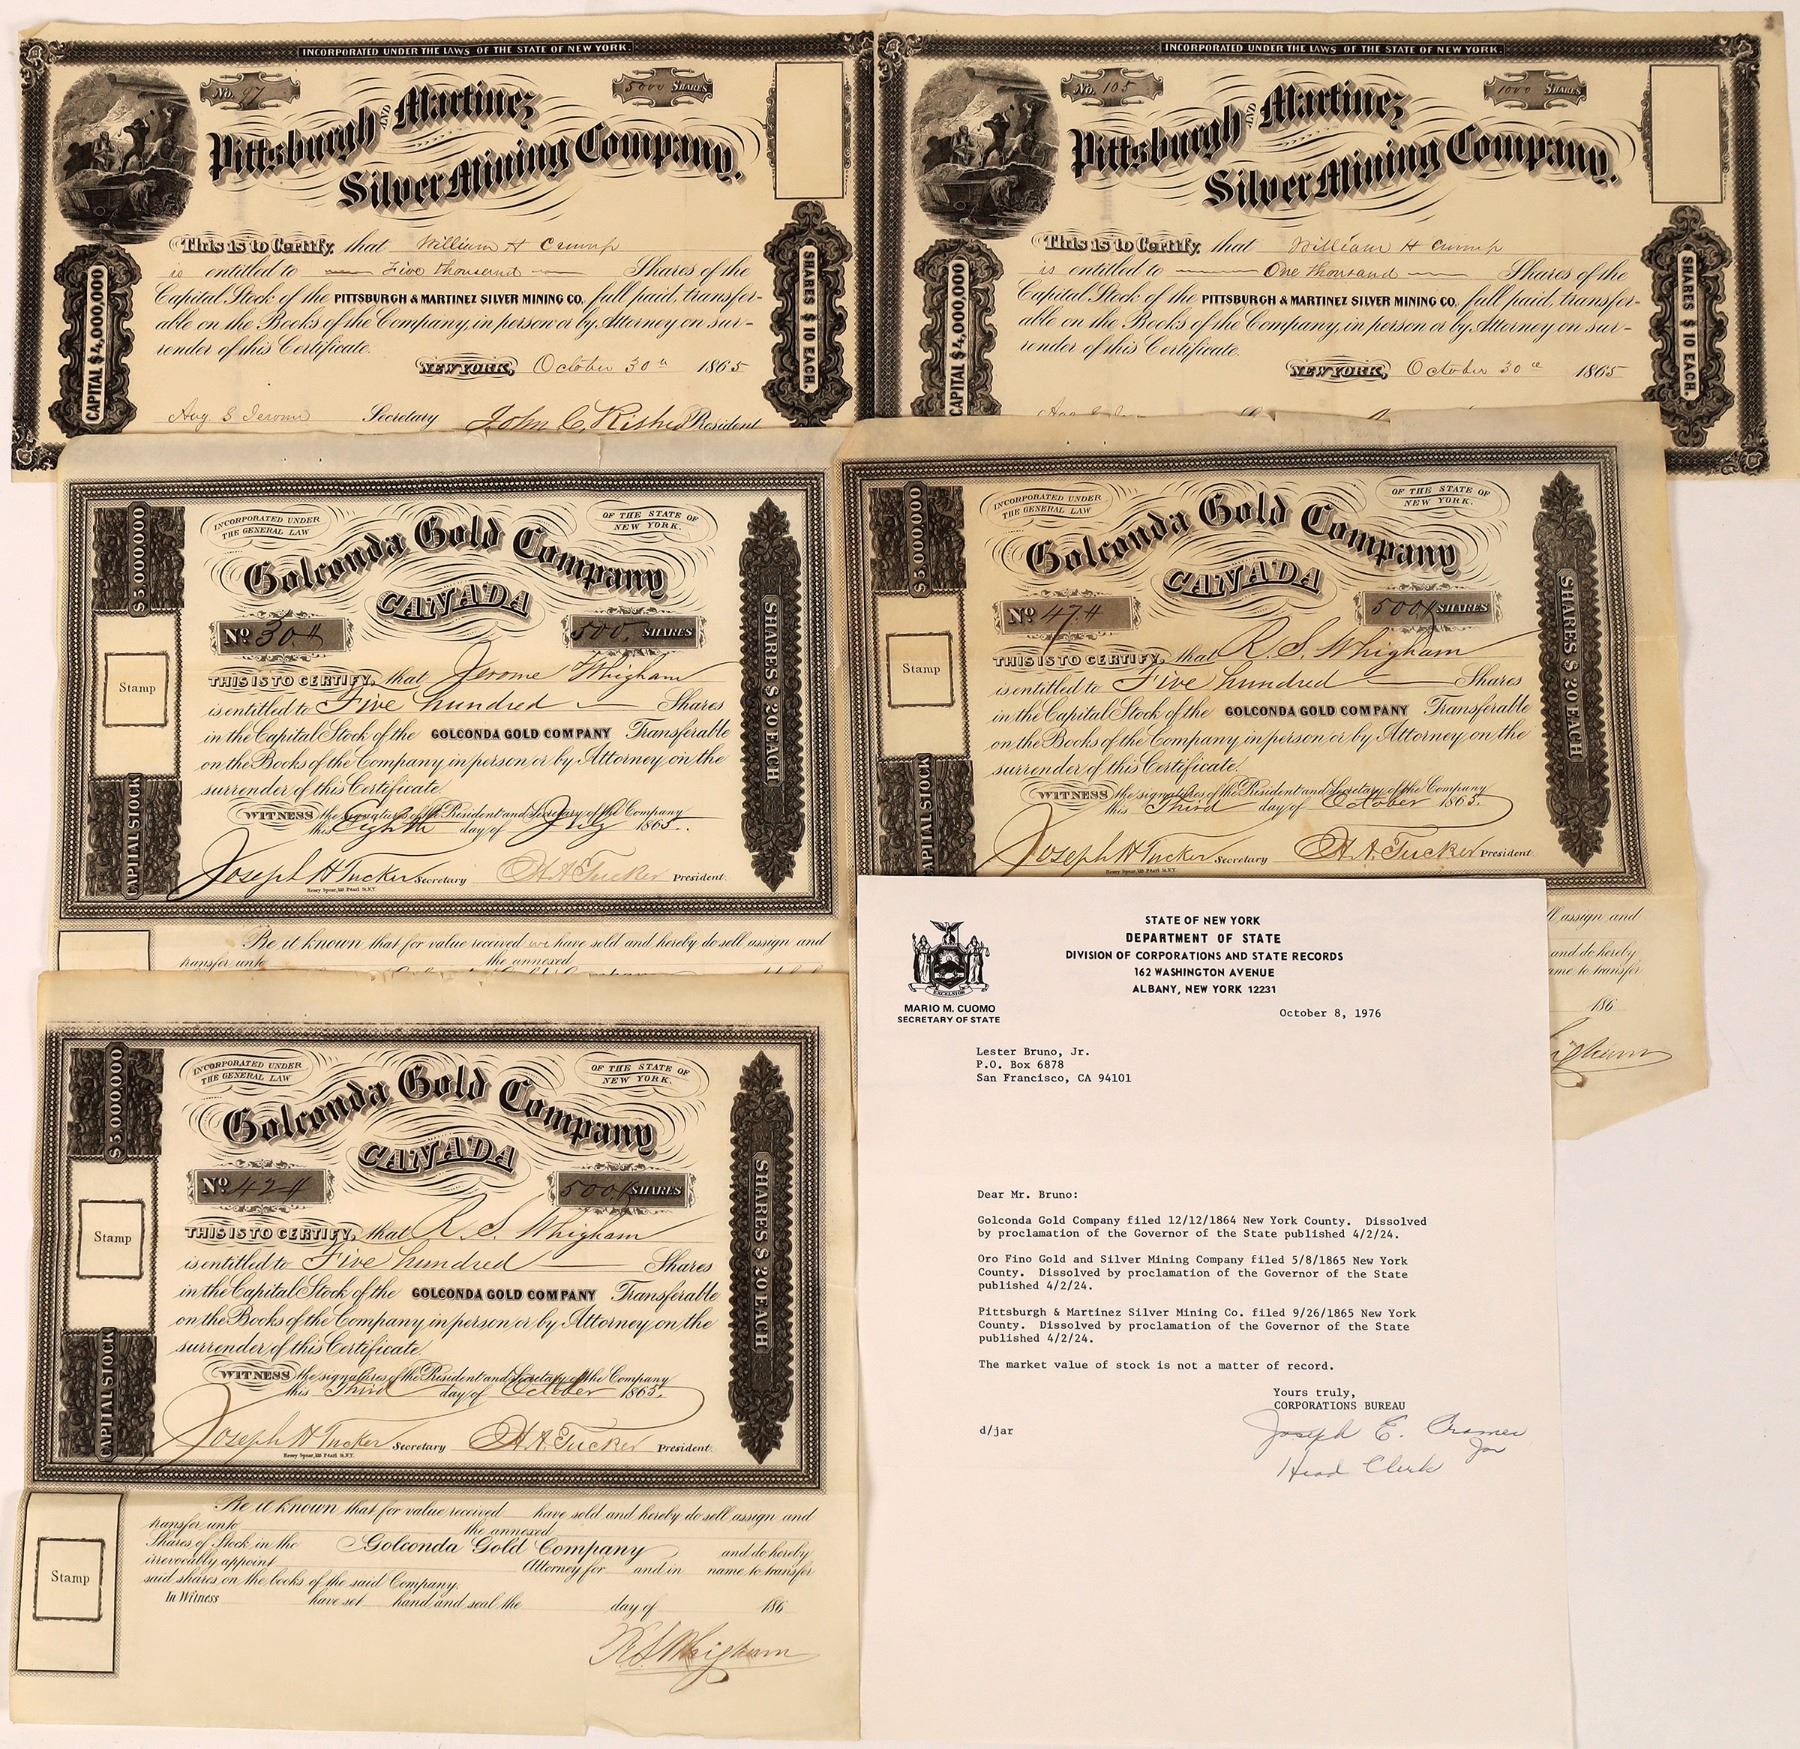 INCORPORATED UNDER THE LAWS OF THE STATE OF NEW YORK.
No. 97
5000 SHARES
Pittsburgh AND Martinez
Silver Mining Company.
This is to Certify, that William H Crump
is entitled to Five thousand Shares of the
Capital Stock of the PITTSBURGH & MARTINEZ SILVER MINING CO. full paid, transfer-
able on the Books of the Company, in person or by Attorney on sur-
render of this Certificate.
NEW YORK, October 30th 1865
Aug S Jerome Secretary John C. President
CAPITAL $4,000,000
SHARES $10 EACH.
INCORPORATED UNDER THE LAWS OF THE STATE OF NEW YORK.
No. 105
1000 SHARES
Pittsburgh AND Martinez
Silver Mining Company.
This is to Certify, that William H Crump
is entitled to One thousand Shares of the
Capital Stock of the PITTSBURGH & MARTINEZ SILVER MINING CO. full paid, transfer-
able on the Books of the Company, in person or by Attorney on sur-
render of this Certificate.
NEW YORK, October 30th 1865
CAPITAL $4,000,000
SHARES $10 EACH.
INCORPORATED UNDER THE GENERAL LAW
OF THE STATE OF NEW YORK.
Golconda Gold Company
CANADA
No 30
500 SHARES
THIS IS TO CERTIFY, that Jerome Whigham
is entitled to Five hundred Shares
in the Capital Stock of the GOLCONDA GOLD COMPANY Transferable
on the Books of the Company in person or by Attorney on the
surrender of this Certificate.
WITNESS the signatures of the President and Secretary of the Company
this Eighth day of July 1865.
Joseph H Tucker Secretary H. A. Tucker President.
Henry Spear, 110 Pearl St. N.Y.
$5,000,000
Stamp
CAPITAL STOCK
SHARES $20 EACH
Be it known that for value received we have sold and hereby do sell assign and
transfer unto the annexed
INCORPORATED UNDER THE GENERAL LAW
OF THE STATE OF NEW YORK.
Golconda Gold Company
CANADA
No 47
500 SHARES
THIS IS TO CERTIFY, that R. S. Whigham
is entitled to Five hundred Shares
in the Capital Stock of the GOLCONDA GOLD COMPANY Transferable
on the Books of the Company in person or by Attorney on the
surrender of this Certificate.
WITNESS the signatures of the President and Secretary of the Company
this Third day of October 1865.
Joseph H Tucker Secretary H. A. Tucker President
$5,000,000
Stamp
CAPITAL STOCK
SHARES $20 EACH
assign and
and do hereby
name to transfer
186
INCORPORATED UNDER THE GENERAL LAW
OF THE STATE OF NEW YORK.
Golconda Gold Company
CANADA
No 42
500 SHARES
THIS IS TO CERTIFY, that R. S. Whigham
is entitled to Five hundred Shares
in the Capital Stock of the GOLCONDA GOLD COMPANY Transferable
on the Books of the Company in person or by Attorney on the
surrender of this Certificate.
WITNESS the signatures of the President and Secretary of the Company
this Third day of October 1865.
Joseph H Tucker Secretary H. A. Tucker President.
$5,000,000
Stamp
CAPITAL STOCK
SHARES $20 EACH
Be it known that for value received have sold and hereby do sell assign and
transfer unto the annexed
Shares of Stock in the Golconda Gold Company and do hereby
irrevocably appoint Attorney for and in name to transfer
said shares on the books of the said Company.
In Witness have set hand and seal the day of 186
Stamp
R S Whigham
STATE OF NEW YORK
DEPARTMENT OF STATE
DIVISION OF CORPORATIONS AND STATE RECORDS
162 WASHINGTON AVENUE
ALBANY, NEW YORK 12231
EXCELSIOR
MARIO M. CUOMO
SECRETARY OF STATE
October 8, 1976
Lester Bruno, Jr.
P.O. Box 6878
San Francisco, CA 94101
Dear Mr. Bruno:
Golconda Gold Company filed 12/12/1864 New York County. Dissolved
by proclamation of the Governor of the State published 4/2/24.
Oro Fino Gold and Silver Mining Company filed 5/8/1865 New York
County. Dissolved by proclamation of the Governor of the State
published 4/2/24.
Pittsburgh & Martinez Silver Mining Co. filed 9/26/1865 New York
County. Dissolved by proclamation of the Governor of the State
published 4/2/24.
The market value of stock is not a matter of record.
Yours truly,
CORPORATIONS BUREAU
d/jar
Joseph E. Cramer
Jar
Head Clerk